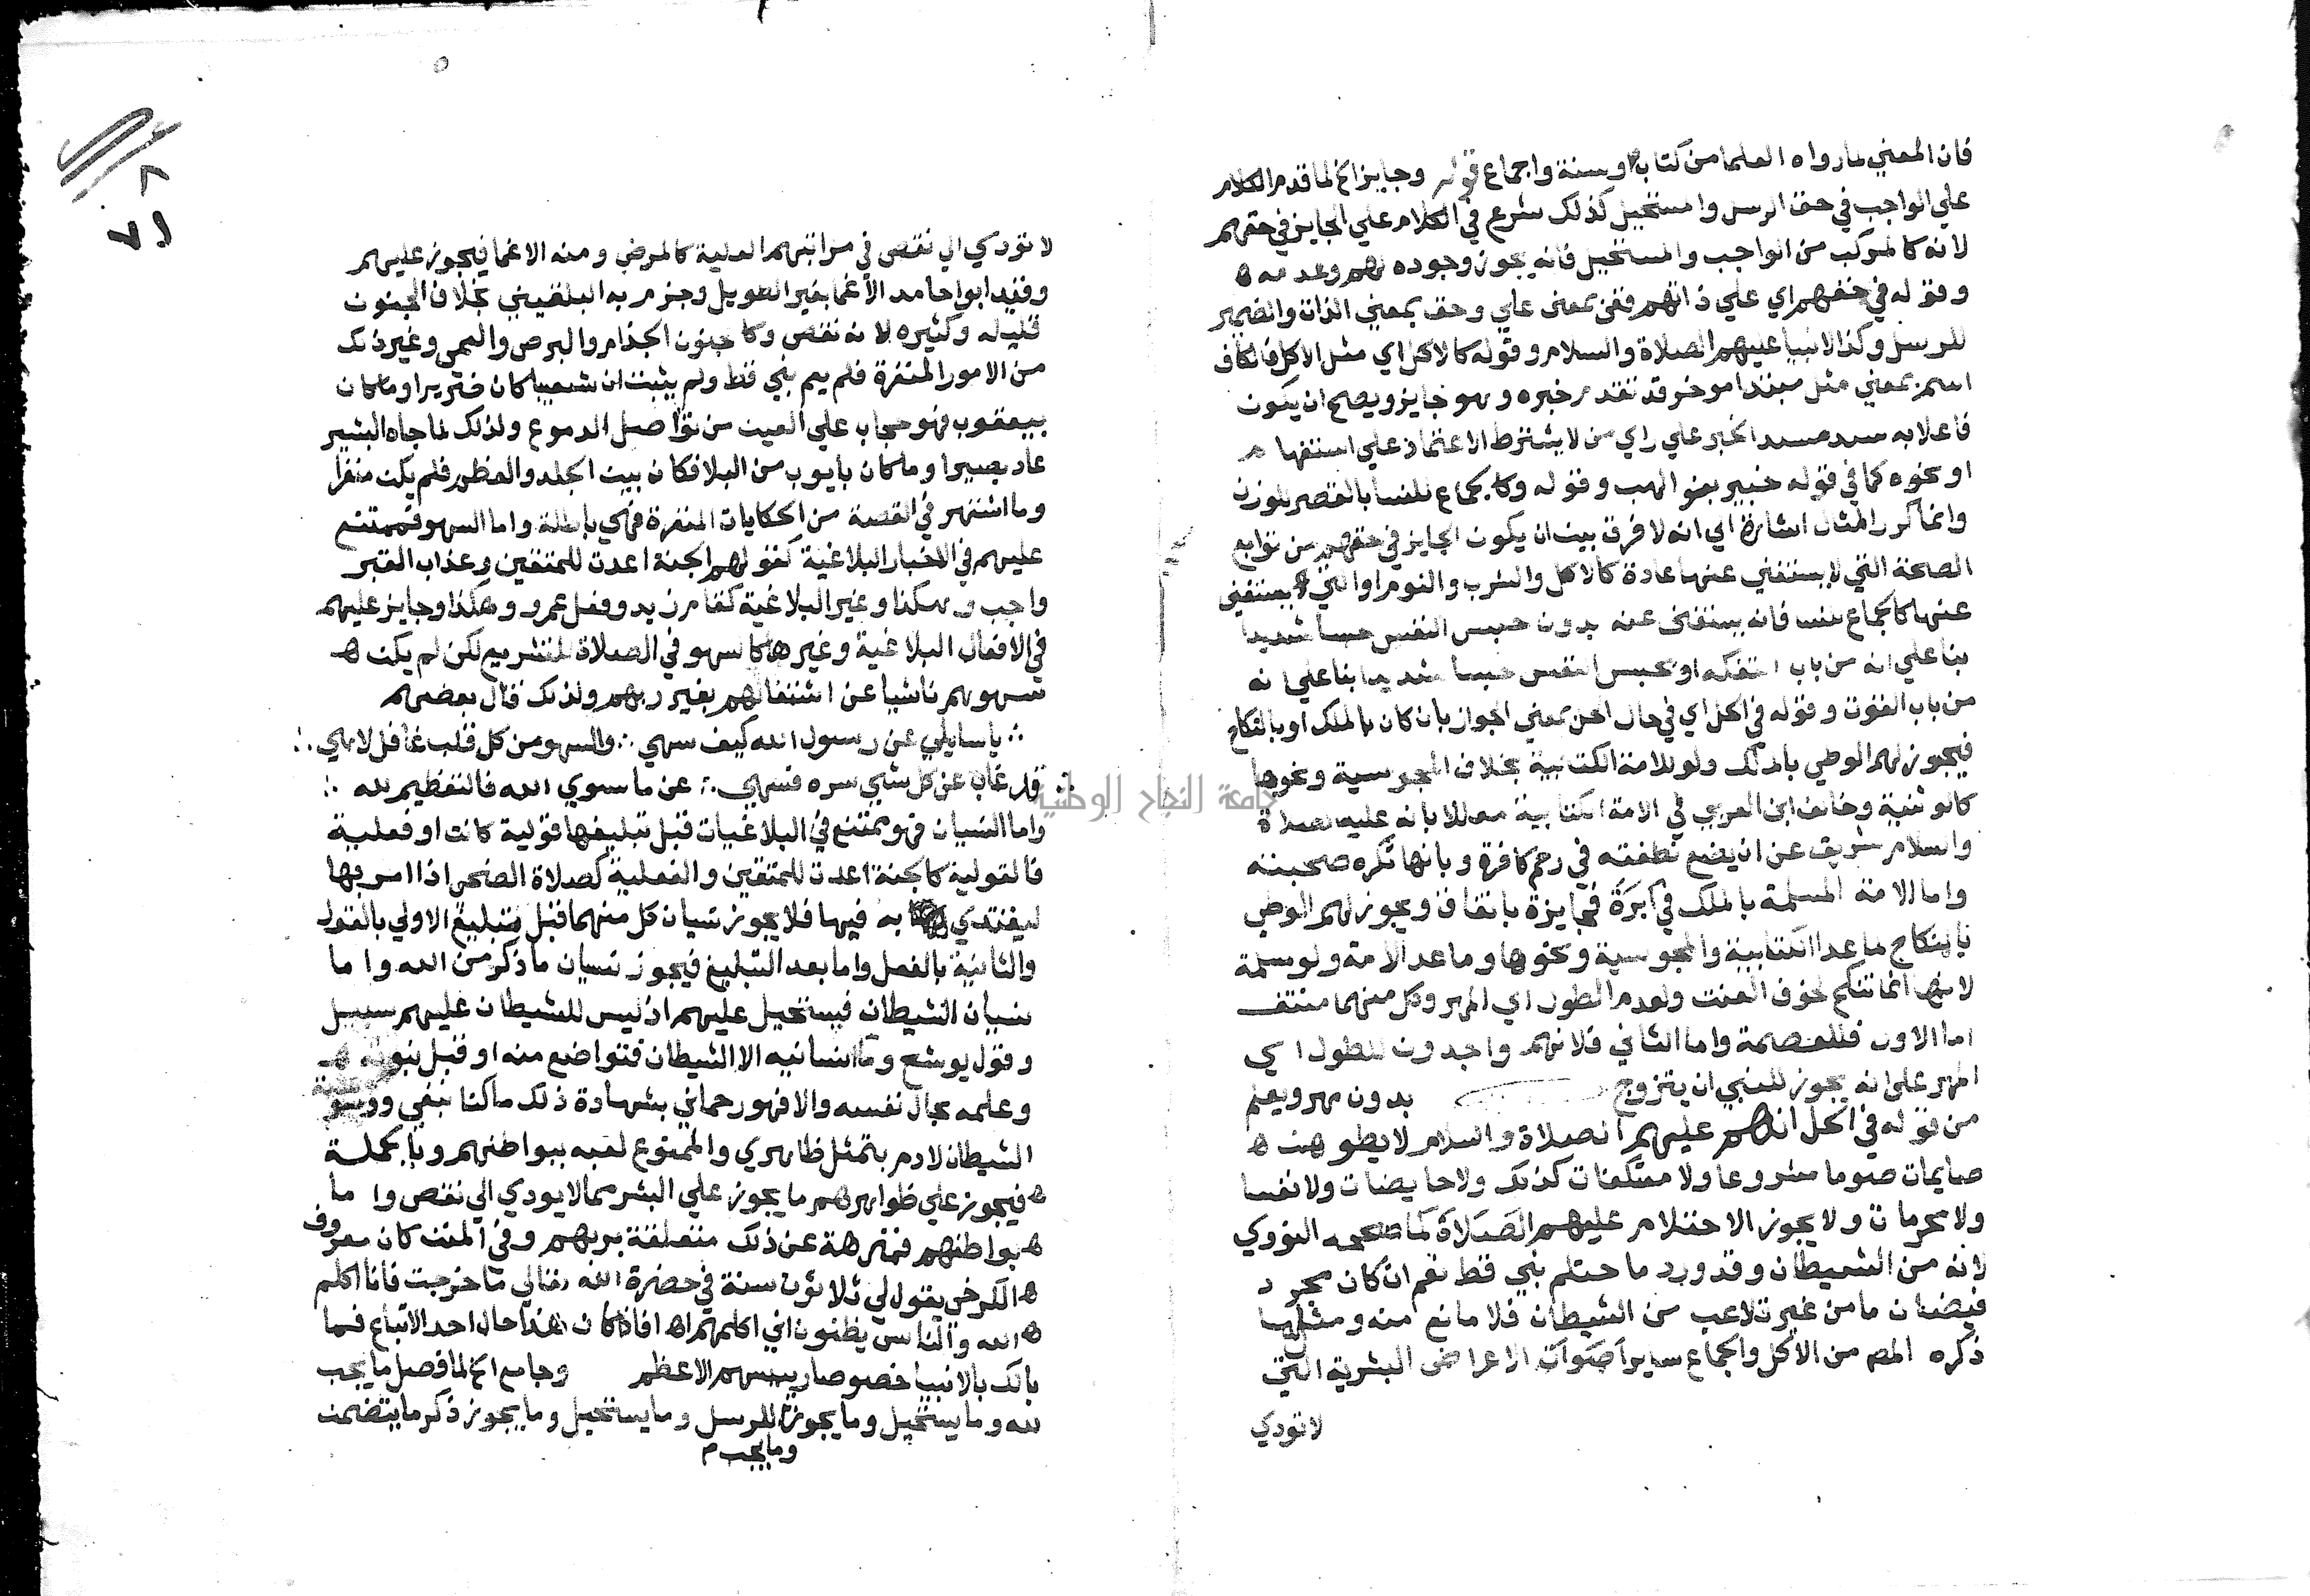 فان المعني لما رواه العلما من كتاب او سنة واجماع قوله وجايز الخ لما قدم الكلام
علي الواجب في حق الرسل والمستحيل كذلك شرع في الكلام علي الجايز في حقهم
لانه كالمركب من الواجب والمستحيل فانه يجوز وجوده لهم وعدمه ه
وقوله في حقهم اي علي ذاتهم ففي بمعني علي وحق بمعني الذات والضمير
للرسل وكذا الانبيا عليهم الصلاة والسلام وقوله كالاكل اي مثل الاكل فالكاف
اسم بمعني مثل مبتدا موخر قد تقدم خبره وهو جايز ويصح ان يكون
فاعلا به سد مسد الخبر علي راي من لا يشترط الاعتماد علي استفهام
او نحوه كما في قوله خبير بنو لهب وقوله وكالجماع للنسا بالقصر للوزن
وانما كرر المثال اشارة الي انه لا فرق بين ان يكون الجايز في حقهم من توابع
الصحة التي لا يستغني عنها عادة كالاكل والشرب والنوم او التي يستغني
عنها كالجماع للنسا فانه يستغني عنه بدون حبس النفس حبسا شديدا
بنا علي انه من باب التفكه او بحبس النفس حبسا شديدا بنا علي انه
من باب القوت وقوله في الحل اي في حال الحل بمعني الجواز بان كان بالملك او بالنكاح
فيجوز لهم الوطي بالملك ولو للامة الكتابية بخلاف المجوسية ونحوها
كالوثنية وخالف ابن العربي في الامة الكتابية معللا بانه عليه الصلاة
والسلام شريف عن ان يضع نطفته في رحم كافرة وبانها تكره صحبته
واما الامة المسلمة بالملك فجايزة باتفاق ويجوز لهم الوطي
بالنكاح ما عدا الكتابية والمجوسية ونحوها وما عدا الامة ولو مسلمة
لانها انما تنكح لخوف العنت ولعدم الطول اي المهر وكل منهما منتف
اما الاول فللعصمة واما الثاني فلانهم واجدون للطول اي
المهر علي انه يجوز للنبي ان يتزوج بدون مهر ويعلم
من قوله في الحل انهم عليهم الصلاة والسلام لا يطوهن ه
صايمات صوما مشروعا ولا معتكفات كذلك ولا حايضات ولا نفسا
ولا محرمات ولا يجوز الاحتلام عليهم الصلاة كما صححه النووي
لانه من الشيطان وقد ورد ما احتلم نبي قط نعم ان كان مجرد
فيضان ما من غير تلاعب من الشيطان فلا مانع منه ومثل ما
ذكره المص من الاكل والجماع ساير الاعراض البشرية التي
لا تودي
لا تودي الي نقص في مراتبهم العلية كالمرض ومنه الاغما فيجوز عليهم
وقيد ابوا حامد الاغما بغير الطويل وجزم به البلقيني بخلاف الجنون
قليله وكثيره لانه نقص وكالجنون الجذام والبرص والعمي وغير ذلك
من الامور المنفرة فلم يعم نبي قط ولم يثبت ان شعيبا كان ضريرا وما كان
بيعقوب فهو حجاب علي العين من تواصل الدموع ولذلك لما جاه البشير
عاد بصيرا وما كان بايوب من البلا فكان بين الجلد والعظم فلم يكن منفرا
وما اشتهر في القصة من الحكايات المنفرة فهي باطلة واما السهو فممتنع
عليهم في الاخبار البلاغية كقولهم الجنة اعدت للمتقين وعذاب القبر
واجب وهكذا وغير البلاغية كقام زيد وقعد عمرو وهكذا وجايز عليهم
في الافعال البلاغية وغيرها كالسهو في الصلاة للتشريع لكن لم يكن ه
سهوهم ناشيا عن اشتغالهم بغير ربهم ولذلك قال بعضهم
∴ يا سايلي عن رسول الله كيف سهي ∴ والسهو من كل قلب غافل لاهي ∴
∴ قد غاب عن كل شي سره فسهي ∴ عن ما سوي الله فالتعظيم لله ∴
واما النسيان فهو ممتنع في البلاغيات قبل تبليغها قولية كانت او فعلية
فالقولية كالجنة اعدت للمتقين والفعلية كصلاة الضحي اذا امر بها
ليقتدي به فيها فلا يجوز نسيان كل منهما قبل تبليغ الاولي بالقول
والثانية بالفعل واما بعد التبليغ فيجوز نسيان ما ذكر من الله واما
نسيان الشيطان فيستحيل عليهم اذ ليس للشيطان عليهم سبيل
وقول يوشع وما انسانيه الا الشيطان فتواضع منه او قبل نبوته
وعلمه بحال نفسه والا فهو رحماني بشهادة ذلك ما كنا نبغي ووسوسة
الشيطان لادم بتمثل ظاهري والممنوع لعبه ببواطنهم وبالجملة
ه فيجوز علي ظواهرهم ما يجوز علي البشر مما لا يودي الي نقص واما
ه بواطنهم فمنزهة عن ذلك متعلقة بربهم وفي المنن كان معروف
ه الكرخي يقول لي ثلاثون سنة في حضرة الله تعالي ما خرجت فانا اكلم
ه الله والناس يظنون اني اكلمهم اه فاذا كان هذا حال احد الاتباع فما
بالك بالانبيا خصوصا رييسهم الاعظم وجامع الخ لما فصل ما يجب
لله وما يستحيل وما يجوز وما يجب للرسل وما يستحيل وما يجوز ذكر ما يتضمن
جامعة النجاح الوطنية